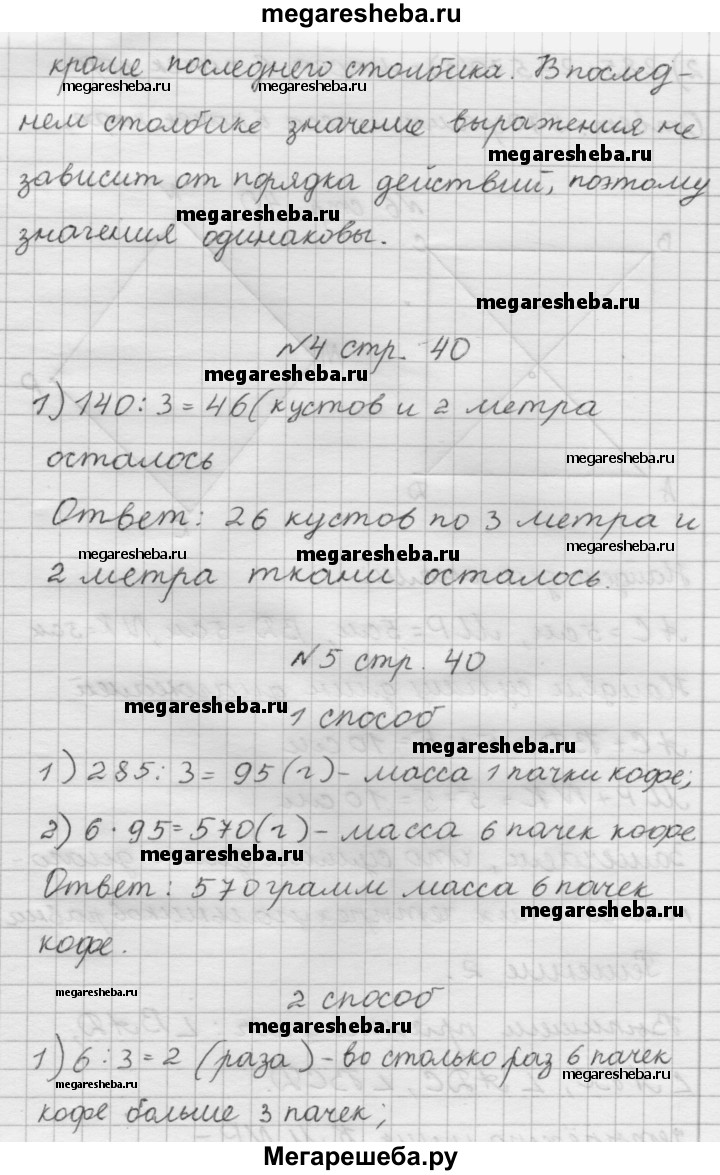 megaresheba.ru
кроме последнего столбика. В послед-
megaresheba.ru megaresheba.ru
нем столбике значение выражения не
megaresheba.ru
зависит от порядка действий, поэтому
megaresheba.ru
значения одинаковы.
megaresheba.ru
№4 стр. 40
megaresheba.ru
1) 140 : 3 = 46 (кустов и 2 метра
осталось
megaresheba.ru
Ответ: 26 кустов по 3 метра и
megaresheba.ru megaresheba.ru megaresheba.ru
2 метра ткани осталось.
№5 стр. 40
megaresheba.ru
1 способ
megaresheba.ru
1) 285 : 3 = 95 (г) - масса 1 пачки кофе;
2) 6 · 95 = 570 (г) - масса 6 пачек кофе
megaresheba.ru
Ответ: 570 грамм масса 6 пачек
megaresheba.ru
кофе.
megaresheba.ru
2 способ
megaresheba.ru
1) 6 : 3 = 2 (раза) - во столько раз 6 пачек
megaresheba.ru megaresheba.ru
кофе больше 3 пачек;
Мегарешеба.ру